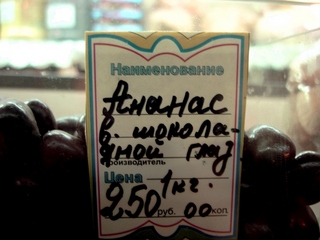 Наименование
Ананас
в. шокола-
дной глаз.
производитель
Цена 1кг.
250 руб. 00 коп.